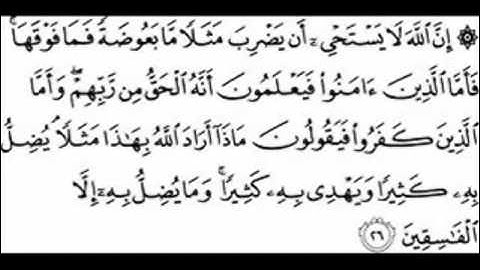 ۞ إِنَّ ٱللَّهَ لَا يَسْتَحْىِۦٓ أَن يَضْرِبَ مَثَلًا مَّا بَعُوضَةً فَمَا فَوْقَهَا ۚ
فَأَمَّا ٱلَّذِينَ ءَامَنُوا۟ فَيَعْلَمُونَ أَنَّهُ ٱلْحَقُّ مِن رَّبِّهِمْ ۖ وَأَمَّا
ٱلَّذِينَ كَفَرُوا۟ فَيَقُولُونَ مَاذَآ أَرَادَ ٱللَّهُ بِهَـٰذَا مَثَلًا ۘ يُضِلُّ
بِهِۦ كَثِيرًا وَيَهْدِى بِهِۦ كَثِيرًا ۚ وَمَا يُضِلُّ بِهِۦٓ إِلَّا
ٱلْفَـٰسِقِينَ ٢٦